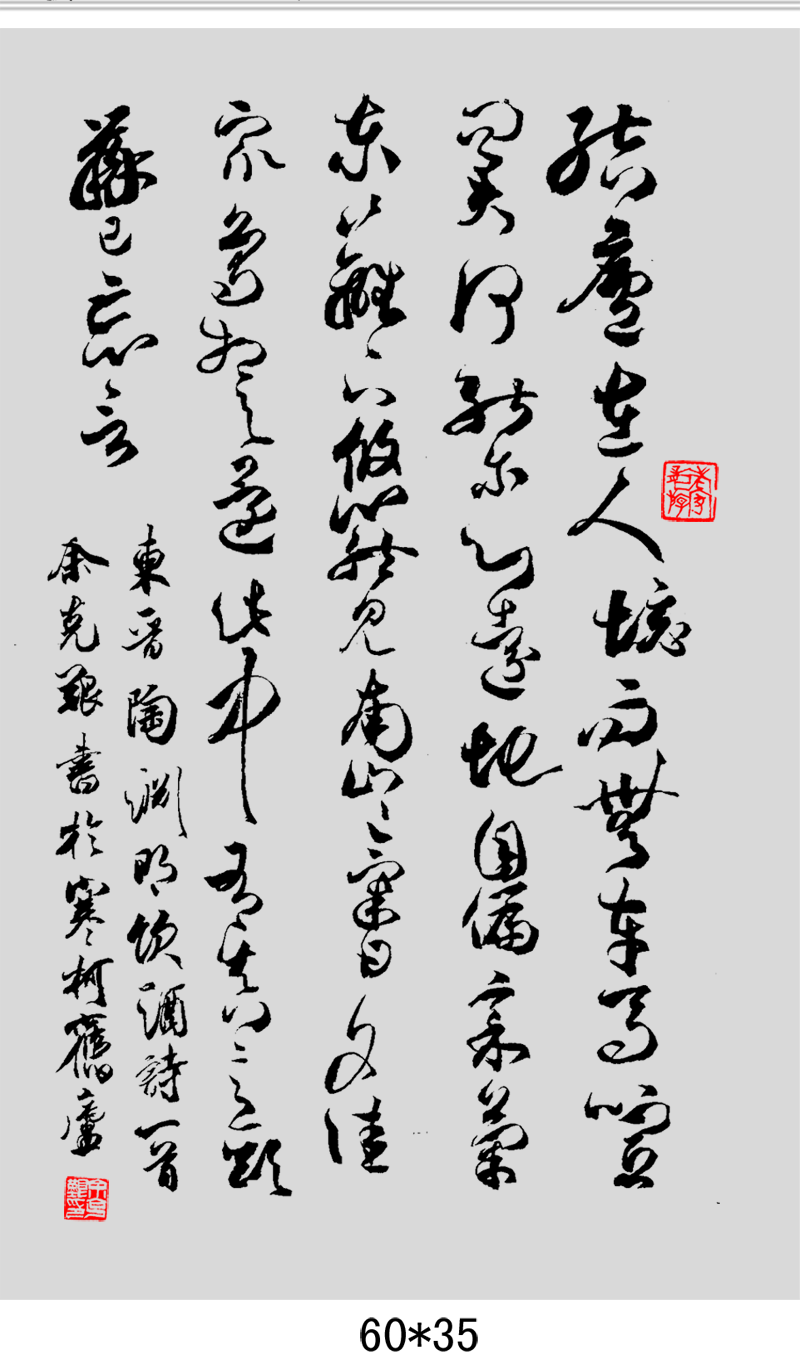 結廬在人境而無車馬喧
問君何能爾心遠地自偏采菊
東籬下悠然見南山々氣日夕佳
飛鳥相與還此中有真意欲
辨已忘言
東晉陶淵明飲酒詩一首
余克艱書於寒柯舊廬
60*35